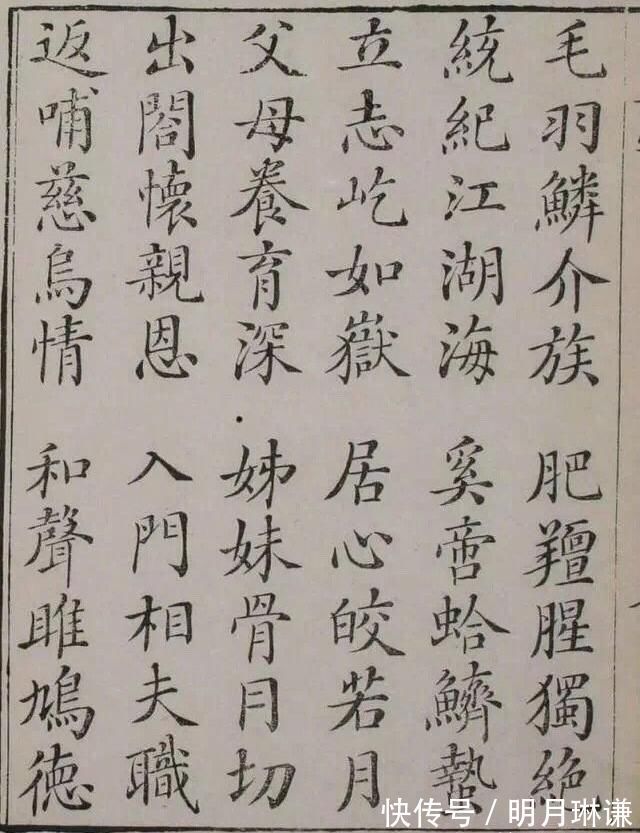 毛羽鱗介族 肥羶腥獨絶
統紀江湖海 奚啻蛤鱭蟄
立志屹如嶽 居心皎若月
父母養育深 姊妹骨月切
出閤懷親恩 入門相夫職
返哺慈烏情 和聲雎鳩德
快传号/明月琳谦